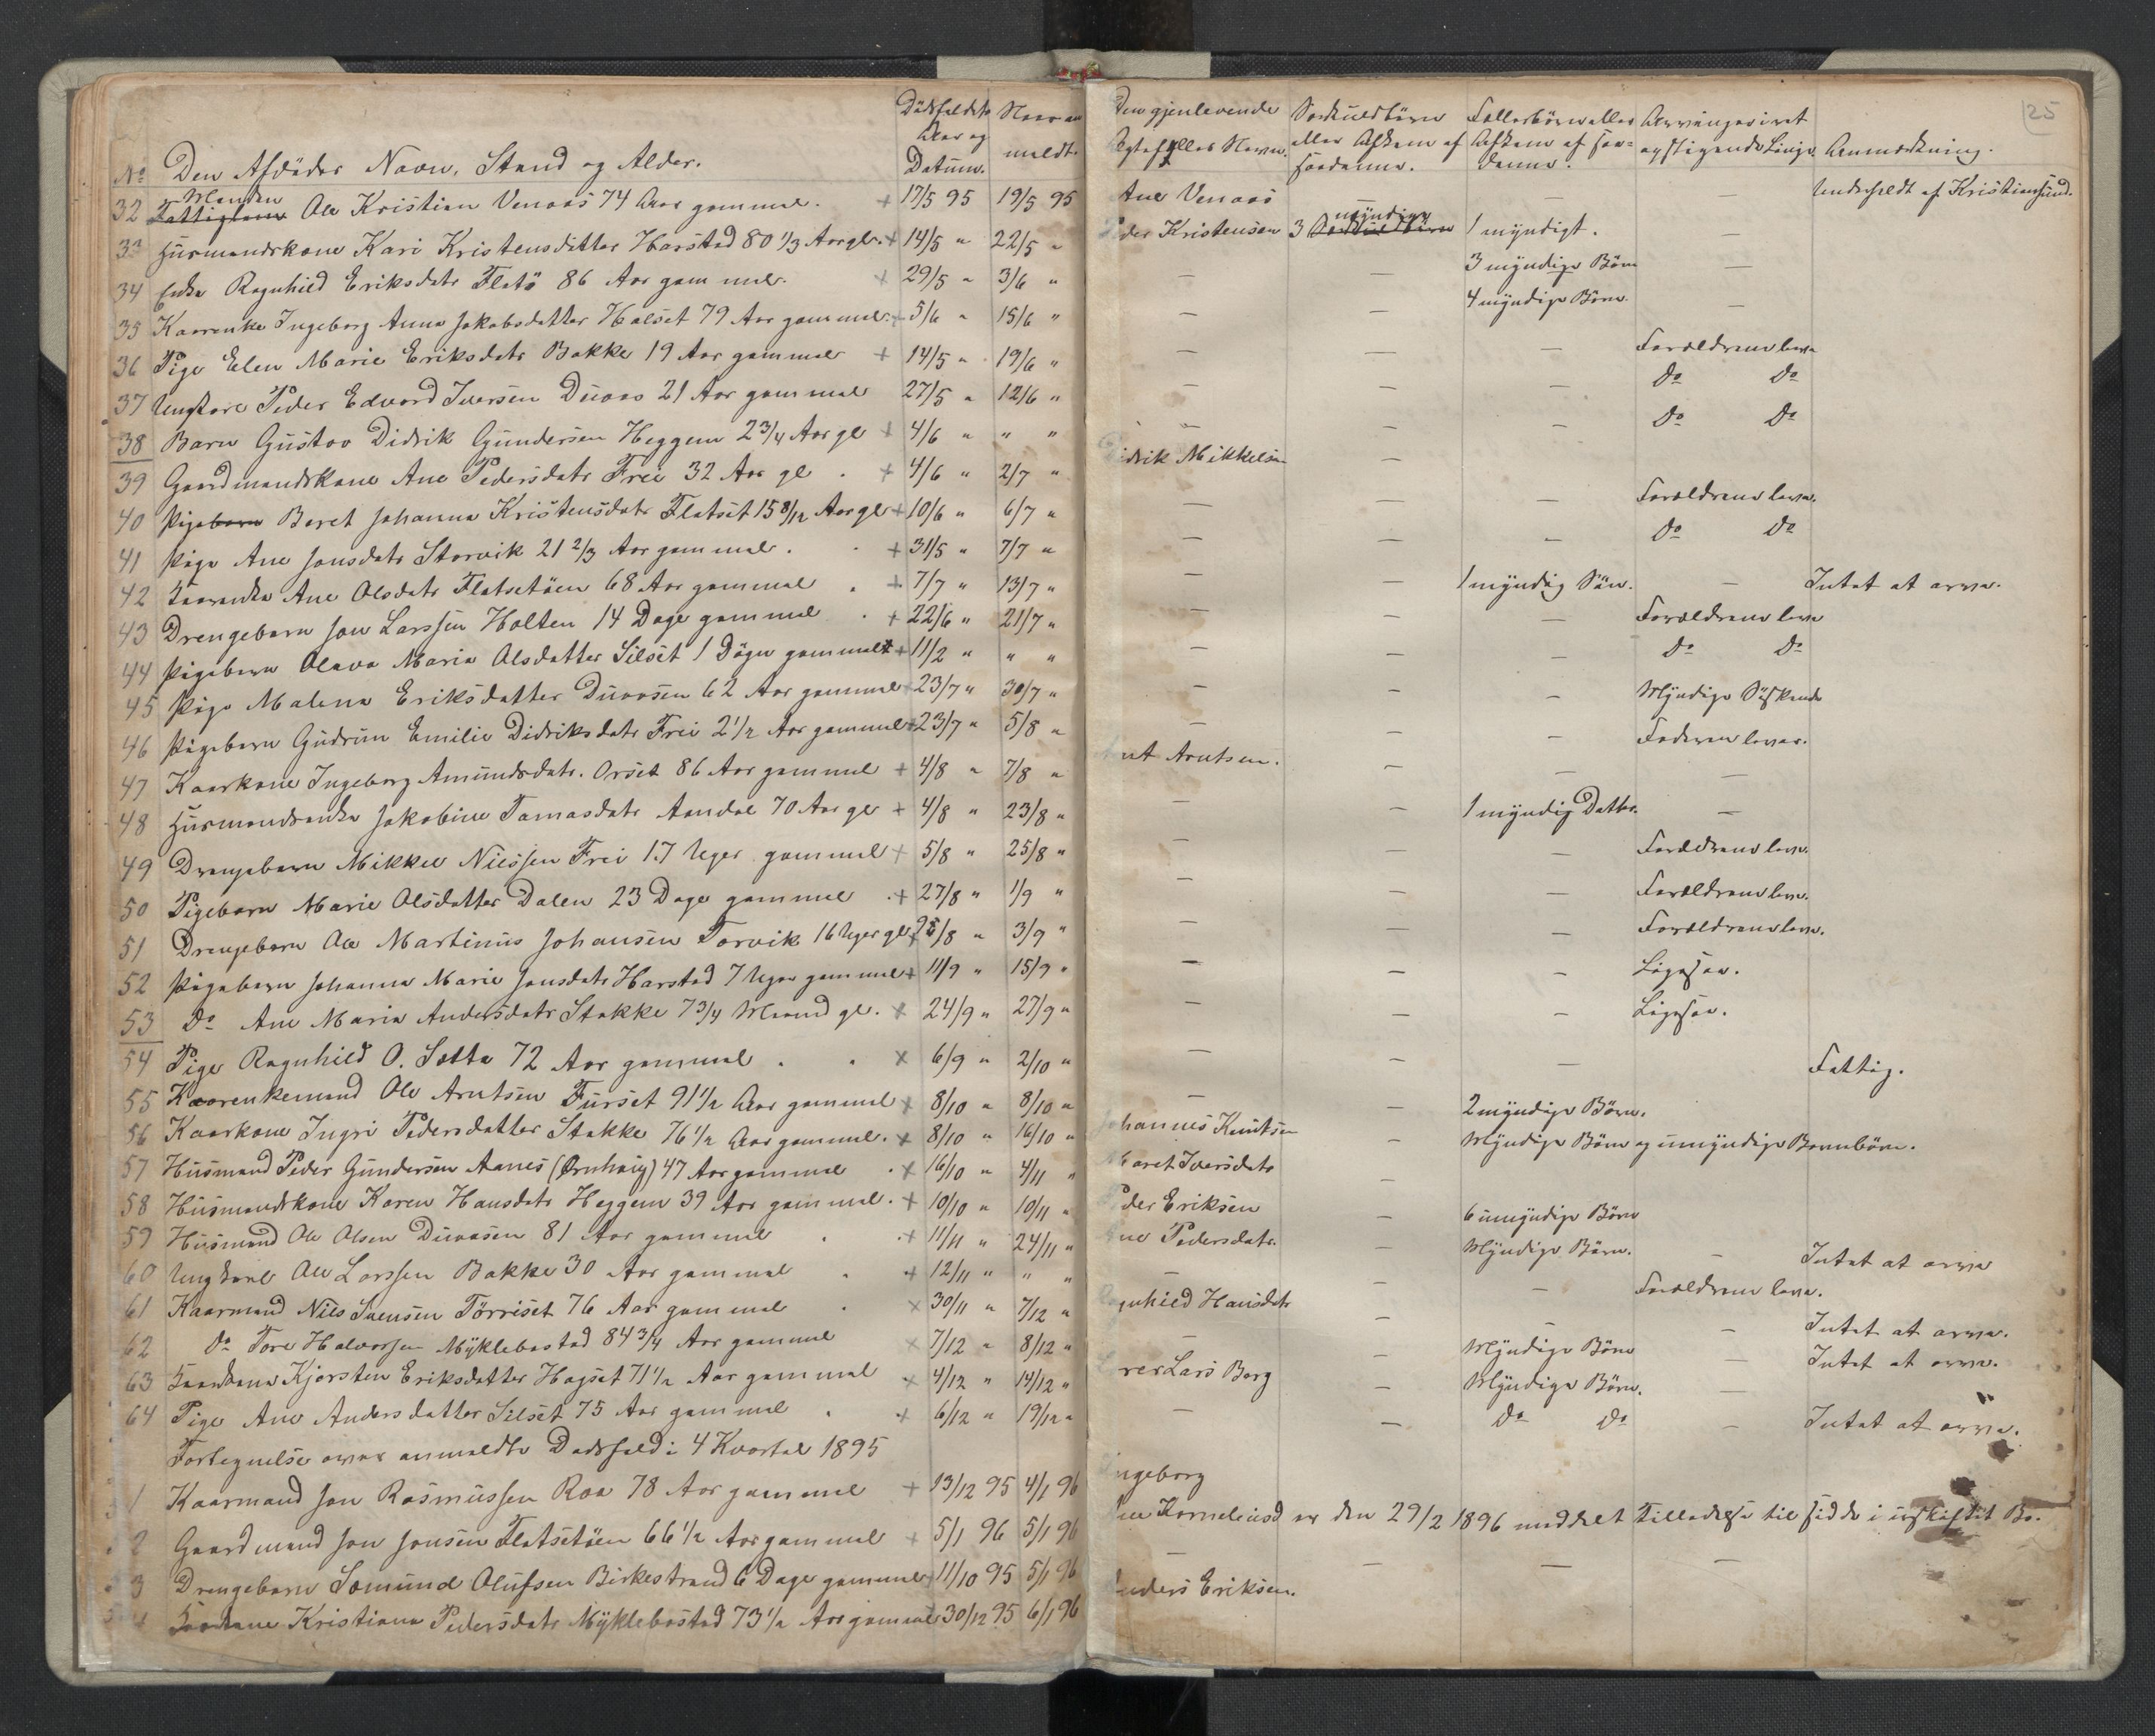 25
No Den Afdødes Navn, Stand og Alder. Dødsfaldets Aar og Datum. Naar anmeldt. Den gjenlevende Ægtefælles Navn. Særkuldbörn eller Afkom af saadanne. Fællesbörn eller Afkom af saadanne. Arvinger i ret opstigende Linje. Anmærkning.
32 Fattiglem Manden Ole Kristian Venaas 74 Aar gammel. + 17/5 95 19/5 95 Ane Venaas — — — Understøldt af Kristiansund.
33 Husmandskone Kari Kristensdatter Harstad 80 1/3 Aar gl. + 14/5 " 22/5 " Peder Kristensen 3 Særkuldbörn myndige 1 myndigt. —
34 Enke Ragnhild Eriksdatr Flatö 86 Aar gammel. + 29/5 " 3/6 " — — 3 myndige Börn —
35 Kaarenke Ingeborg Anna Jakobsdatter Halset 79 Aar gammel. + 5/6 " 15/6 " — — 4 myndige Börn. —
36 Pige Elen Marie Eriksdatr Bakke 19 Aar gammel + 14/5 " 19/6 " — — — Forældrene leve
37 Ungkarl Peder Edvard Iversen Duaas 21 Aar gammel 27/5 " 12/6 " — — — Do Do
38 Barn Gustav Didrik Gundersen Heggem 2 3/4 Aar gl + 4/6 " " " — — — Do Do
39 Gaardmandskone Ane Pedersdatr Frei 32 Aar gl. + 4/6 " 2/7 " Didrik Mikkelsen —
40 Pigebarn Beret Johanna Kristensdatr Flatset 15 8/12 Aar gl + 10/6 " 6/7 " — — — Forældrene leve.
41 Pige Ane Jonsdatr Storvik 21 2/3 Aar gammel. + 31/5 " 7/7 " — — — Do Do
42 Kaarenke Ane Olsdatr Flatsetöen 68 Aar gammel. + 7/7 " 13/7 " — — 1 myndig Sön. — Intet at arve.
43 Drengebarn Jon Larssen Holten 14 Dage gammel. + 22/6 " 21/7 " — — — Forældrene leve
44 Pigebarn Olava Maria Olsdatter Silset 1 Dögn gammel + 11/2 " " " — — — Do Do
45 Pige Malena Eriksdatter Duaasen 62 Aar gammel + 23/7 " 30/7 " — — — Myndige Söskende
46 Pigebarn Gudrun Emilie Didriksdatr Frei 2 1/2 Aar gammel + 23/7 " 5/8 " — — — Faderen lever.
47 Kaarkone Ingeborg Amundsdatr. Orset 86 Aar gammel + 4/8 " 7/8 " Arnt Arntsen. — — —
48 Husmandsenke Jakobine Tamasdatr Aandal 70 Aar gl + 4/8 " 23/8 " — — 1 myndig Datter. —
49 Drengebarn Mikkel Nielssen Frei 17 Uger gammel + 5/8 " 25/8 " — — — Forældrene leve.
50 Pigebarn Marie Olsdatter Dalen 23 Dage gammel. + 27/8 " 1/9 " — — — Forældrene leve.
51 Drengebarn Ole Martinus Johansen Torvik 16 Uger gl. + 25/8 " 3/9 " — — — Forældrene leve.
52 Pigebarn Johanna Marie Jonsdatr Harstad 7 Uger gammel + 11/9 " 15/9 " — — — Ligesaa.
53 Do Ane Maria Andersdatr Stakke 7 3/4 Maaned gl. × 24/9 " 27/9 " — — — Ligesaa.
54 Pige Ragnhild O. Sætta 72 Aar gammel. × 6/9 " 2/10 " — — — Fattig.
55 Kaarenkemand Ole Arntsen Furset 91 1/2 Aar gammel × 8/10 " 8/10 " — — 2 myndige Börn.
56 Kaarkone Ingri Pedersdatter Stakke 76 1/2 Aar gammel. × 8/10 " 16/10 " Johannes Knutsen — Myndige Börn og umyndige Barnebörn.
57 Husmand Peder Gundersen Aanes (Ørnhaug) 47 Aar gammel. × 16/10 " 4/11 " Maret Iversdatr —
58 Husmandskone Karen Hansdatr Heggem 39 Aar gammel. + 10/10 " 10/11 " Peder Eriksen — 6 umyndige Börn
59 Husmand Ole Olsen Duaasen 81 Aar gammel. + 11/11 " 24/11 " Ane Pedersdatr. — Myndige Börn. — Intet at arve
60 Ungkarl Ole Larssen Bakke 30 Aar gammel. + 12/11 " " " — — — Forældrene leve.
61 Kaarmand Nils Svensen Törriset 76 Aar gammel. × 30/11 " 7/12 " Ragnhild Hansdatr — — — Intet at arve.
62 Do Tore Halvorsen Myklebostad 84 3/4 Aar gammel × 7/12 " 8/12 " — — Myndige Börn — Intet at arve.
63 Kaarkone Kjersten Eriksdatter Hogset 71 1/2 Aar gammel × 4/12 " 14/12 " Lærer Lars Berg — Myndige Börn. —
64 Pige Ane Andersdatter Silset 75 Aar gammel. × 6/12 " 19/12 " — — Do Do — Intet at arve.
Fortegnelse over anmeldte Dødsfald i 4 Kvartal 1895
1 Kaarmand Jon Rasmussen Roa 78 Aar gammel + 13/12 95 4/1 96 Ingeborg
2 Gaardmand Jon Jonsen Flatsetöen 66 1/2 Aar gammel + 5/1 96 5/1 96 Ane Korneliusd er den 29/2 1896 meddelt Tilladelse til sidde i uskiftet Bo.
3 Drengebarn Somund Olufsen Birkestrand 6 Dage gammel + 11/10 95 5/1 96 — — — —
4 Kaarkone Kristiana Pedersdatr Myklebostad 73 1/2 Aar gammel 30/12 95 6/1 96 Anders Eriksen.